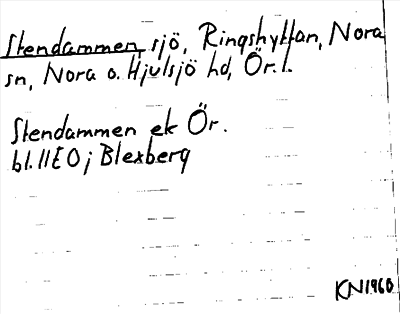 Stendammen, sjö, Ringshyttan, Nora
sn, Nora o. Hjulsjö hd, Ör. l.
Stendammen ek Ör.
bl. 11E0j Blexberg
KN1960